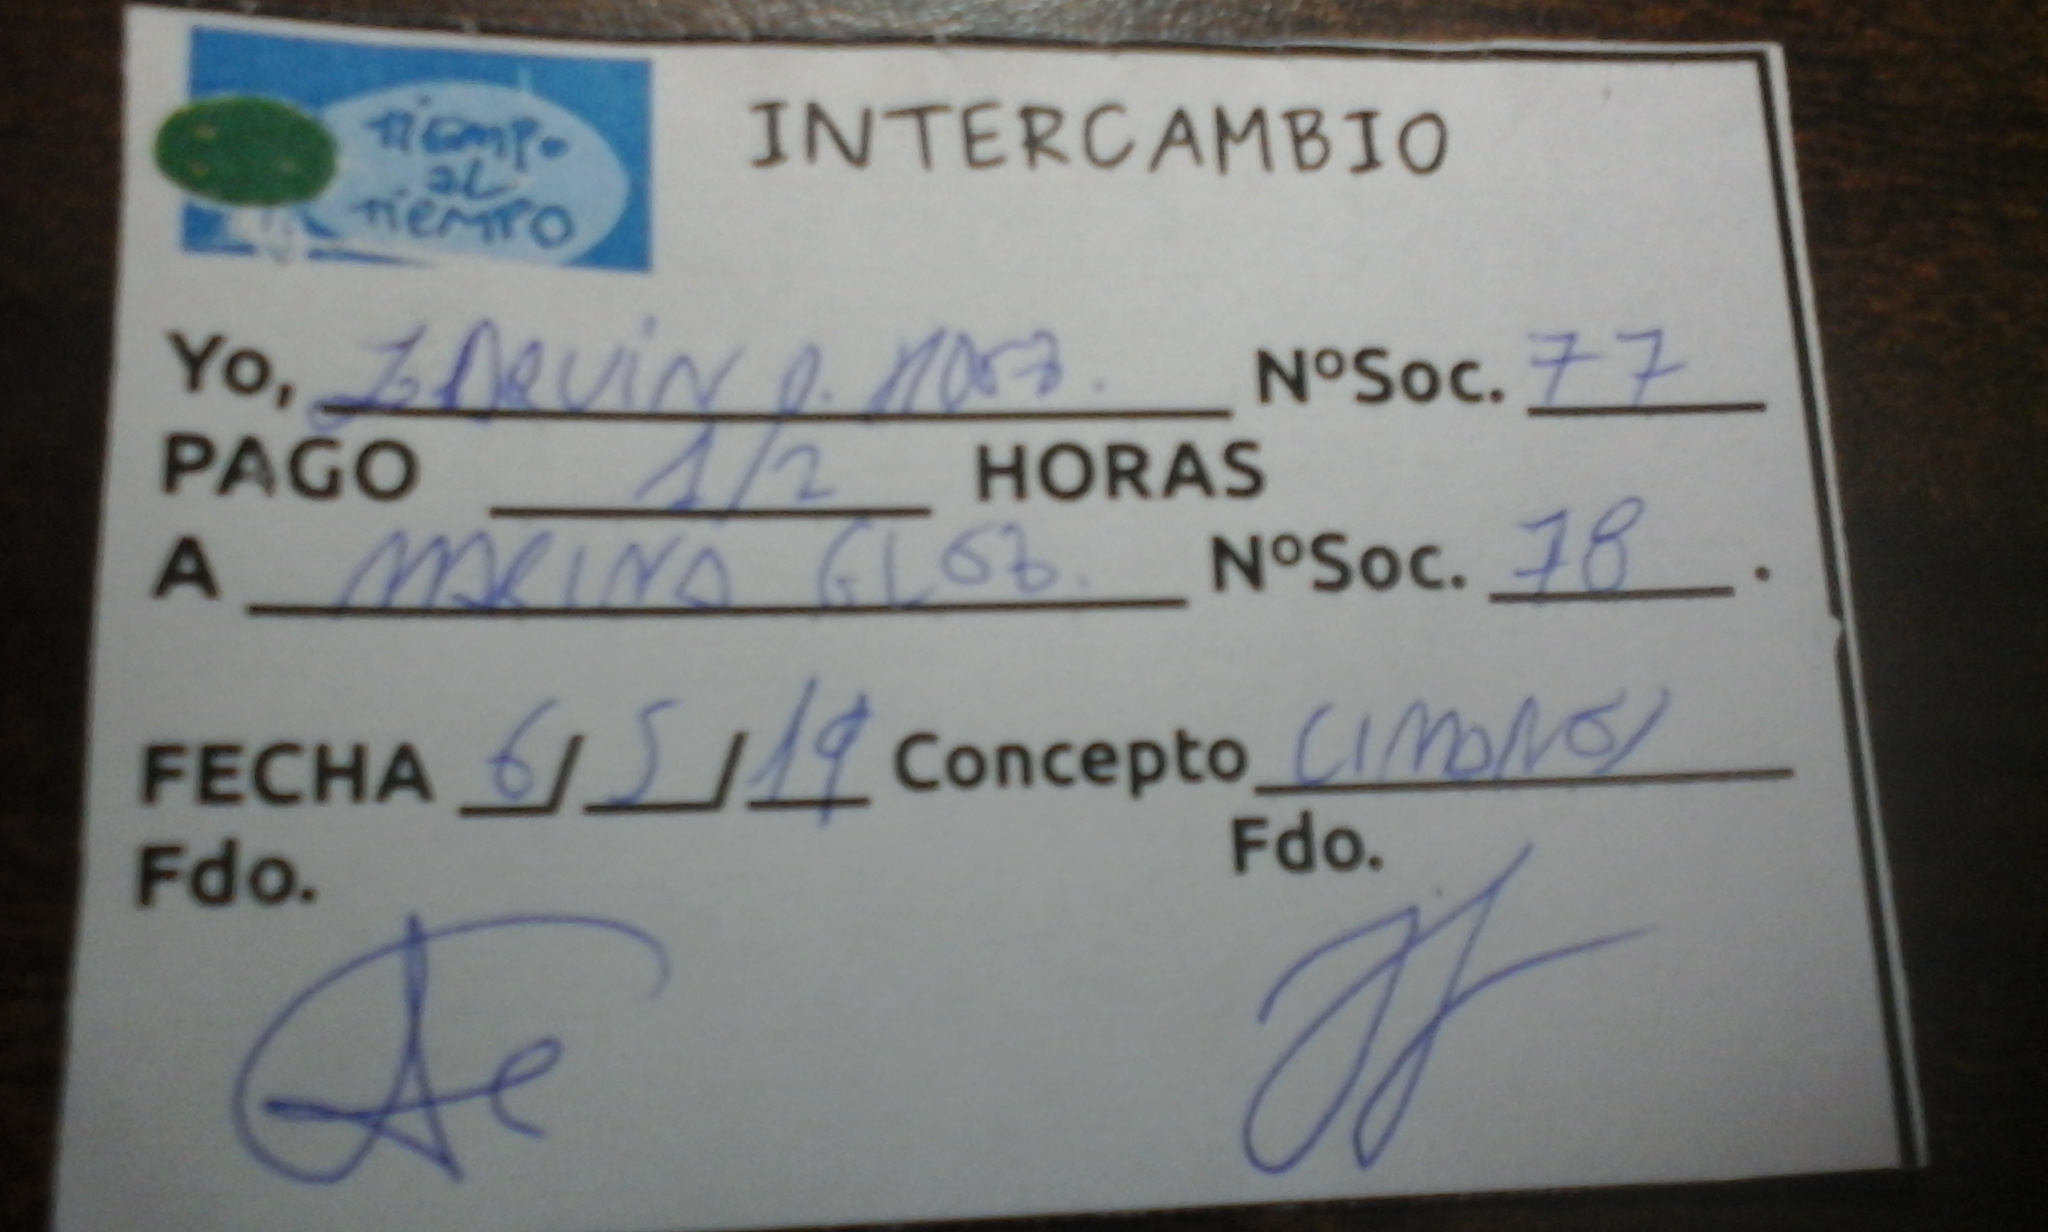 TiEMPo
aL
TiEMPO
INTERCAMBIO
Yo, NºSoc. 77
PAGO 1/2 HORAS
A MARINA NºSoc. 78 .
FECHA 6/5/19 Concepto LIMONES
Fdo. Fdo.